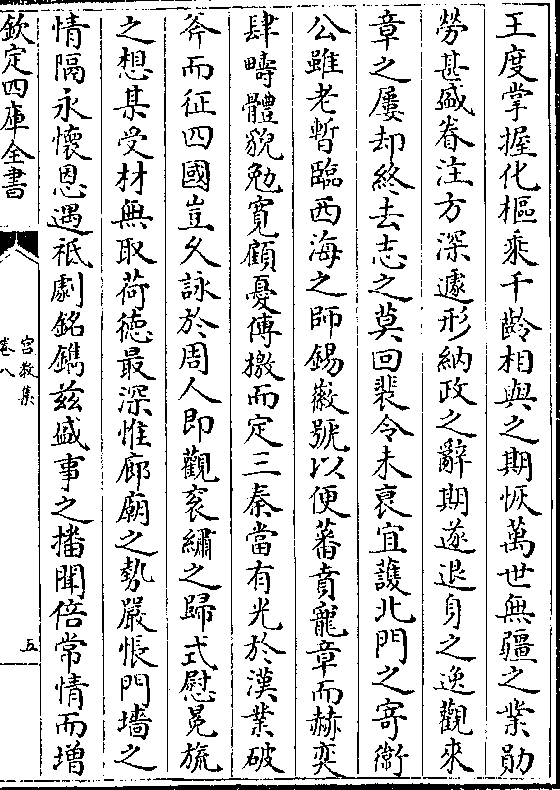 王度掌握化樞乘千齡相與之期恢萬世無疆之業勛
勞甚盛眷注方深遽形納政之辭期遂退身之逸觀來
章之屢却終去志之莫回裴令未衰宜護北門之寄衛
公雖老暫臨西海之師錫徽號以便蕃賁寵章而赫奕
肆疇體貌勉寛顧憂傳檄而定三秦當有光於漢業破
斧而征四國豈久詠於周人即觀衮繡之歸式慰冕旒
之想某受材無取荷徳最深惟廊廟之勢嚴悵門墻之
情隔永懷恩遇祗劇銘鐫兹盛事之播聞倍常情而増
欽定四庫全書
宫教集
卷八
五